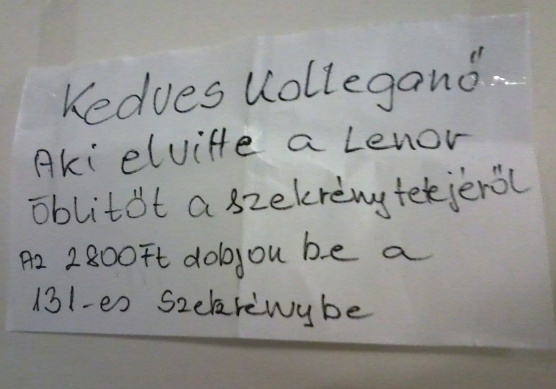 Kedves Kolleganő
Aki elvitte a Lenor
öblitőt a szekrény tetejéről
Az 2800Ft dobjon be a
131-es szekrénybe